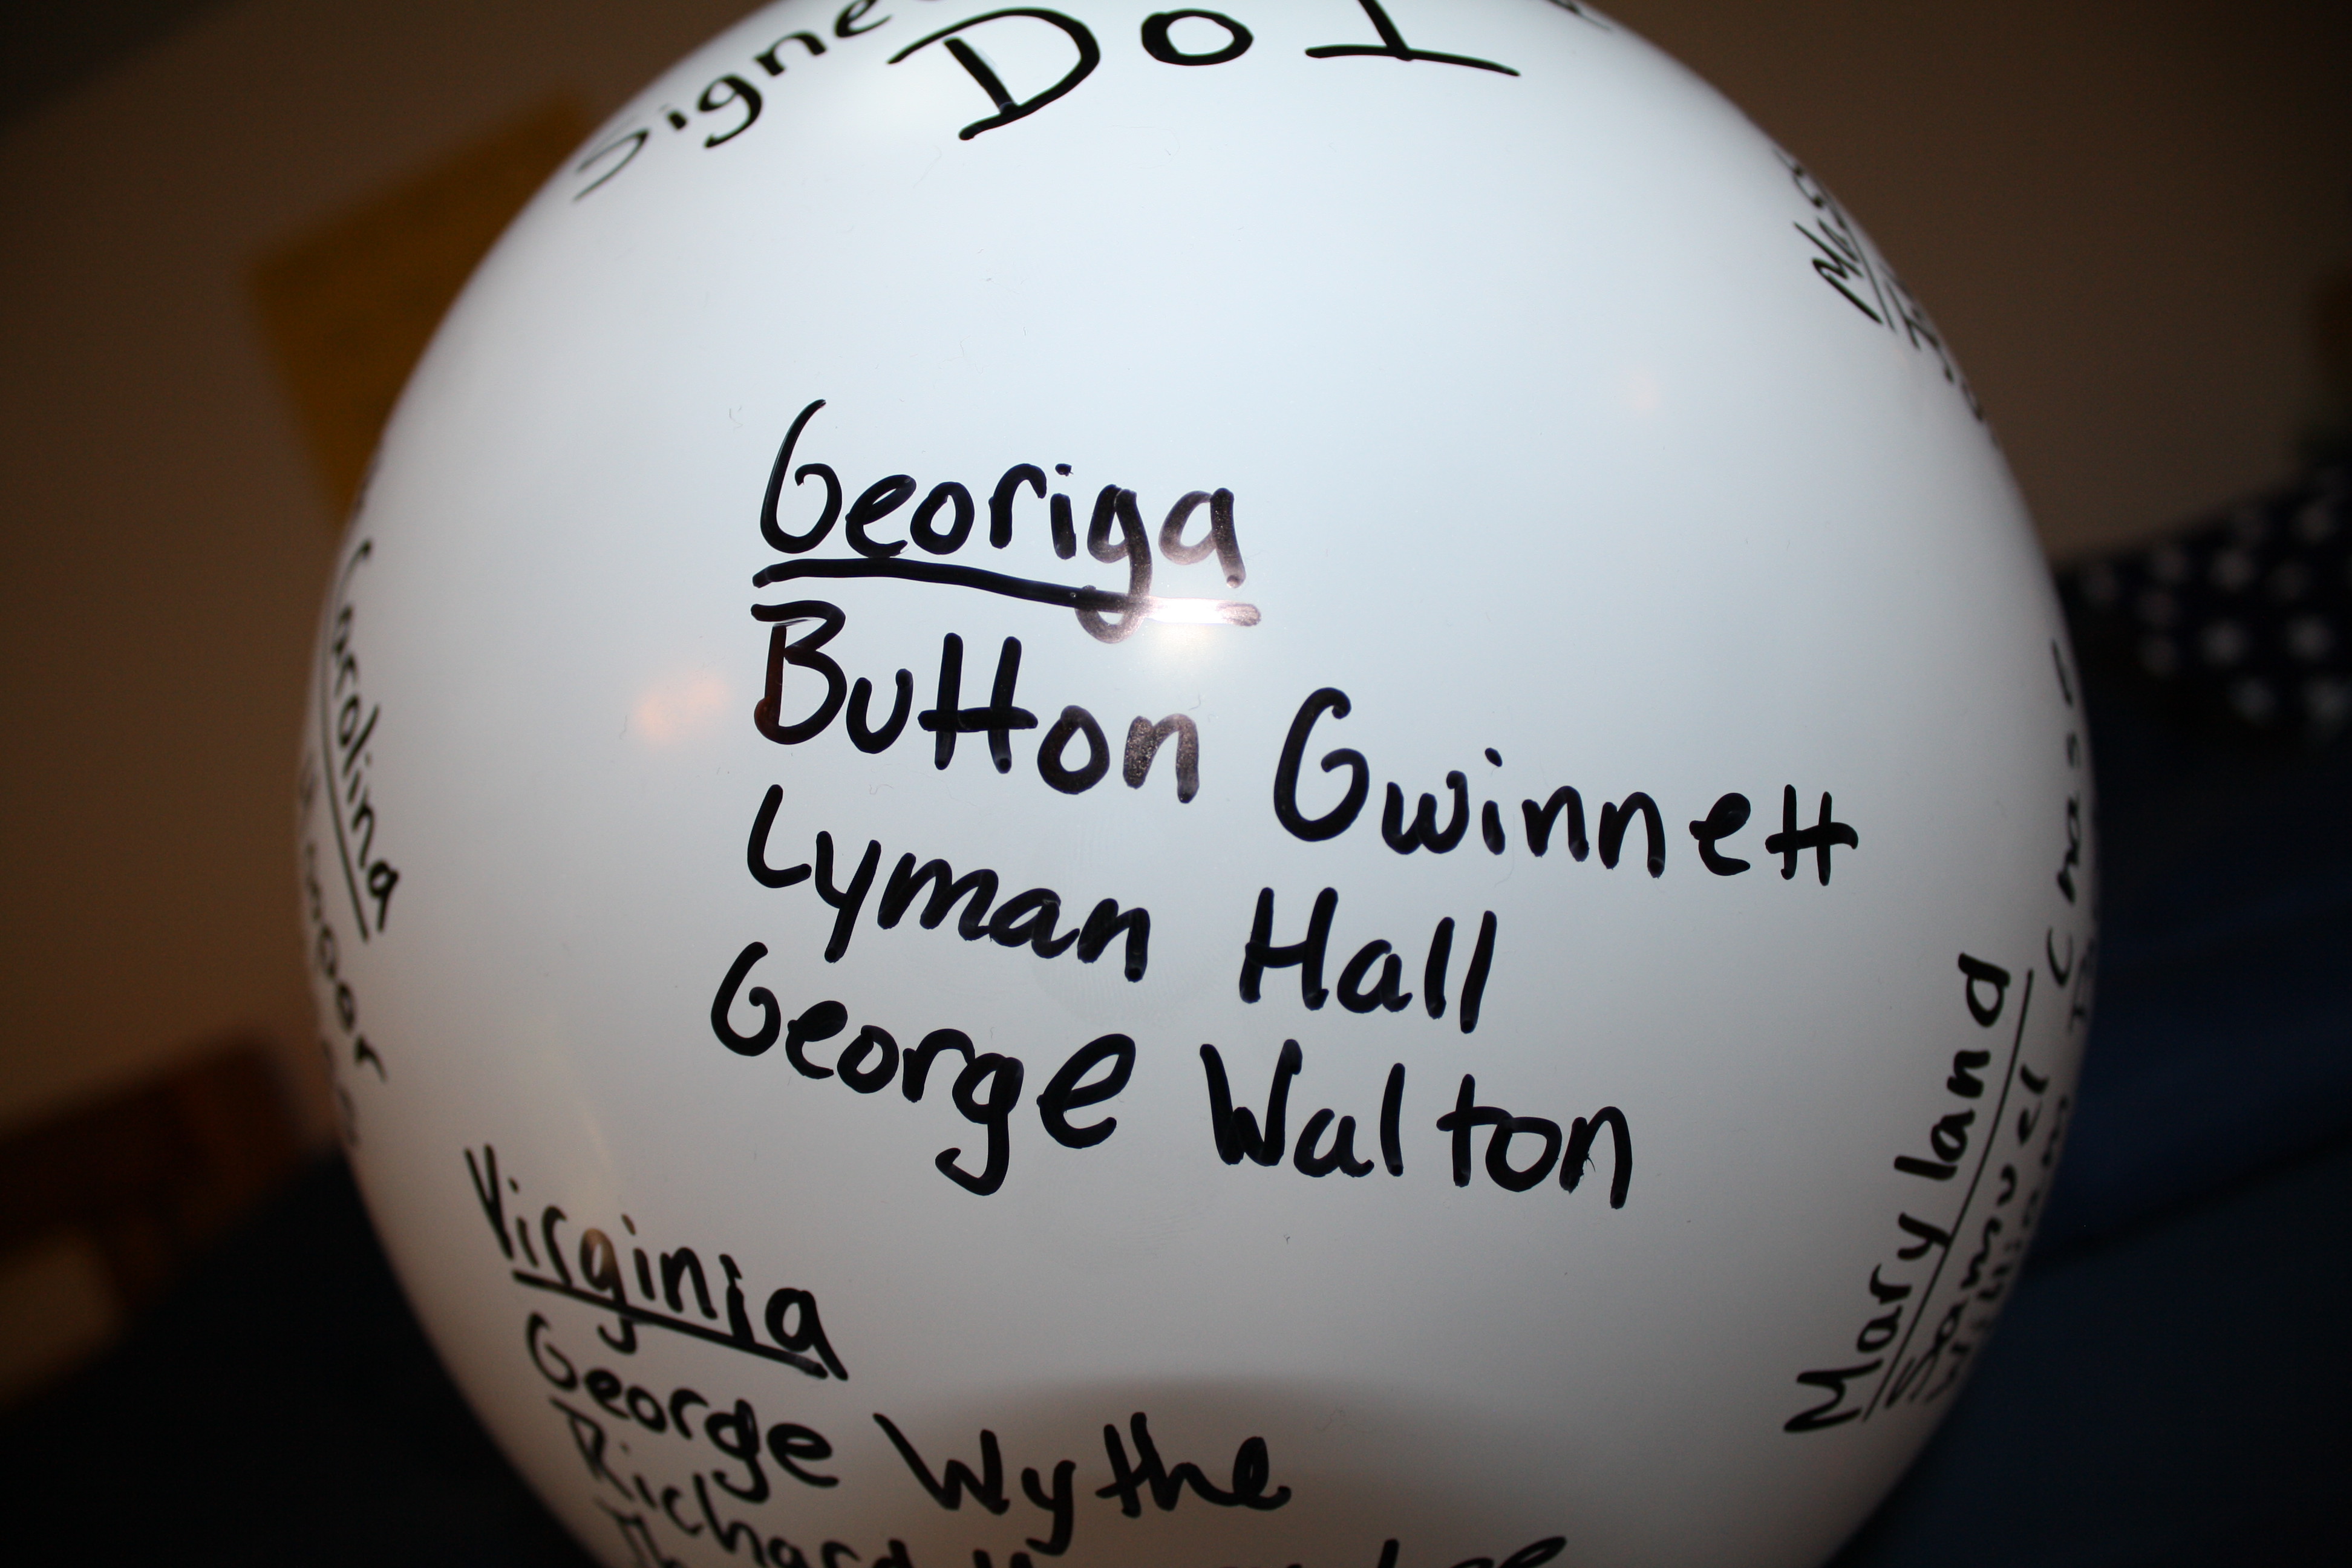 DoI
Georiga
Button Gwinnett
Lyman Hall
George Walton
Virginia
George Wythe
Richard
Carolina
Maryland
Samuel
Chase